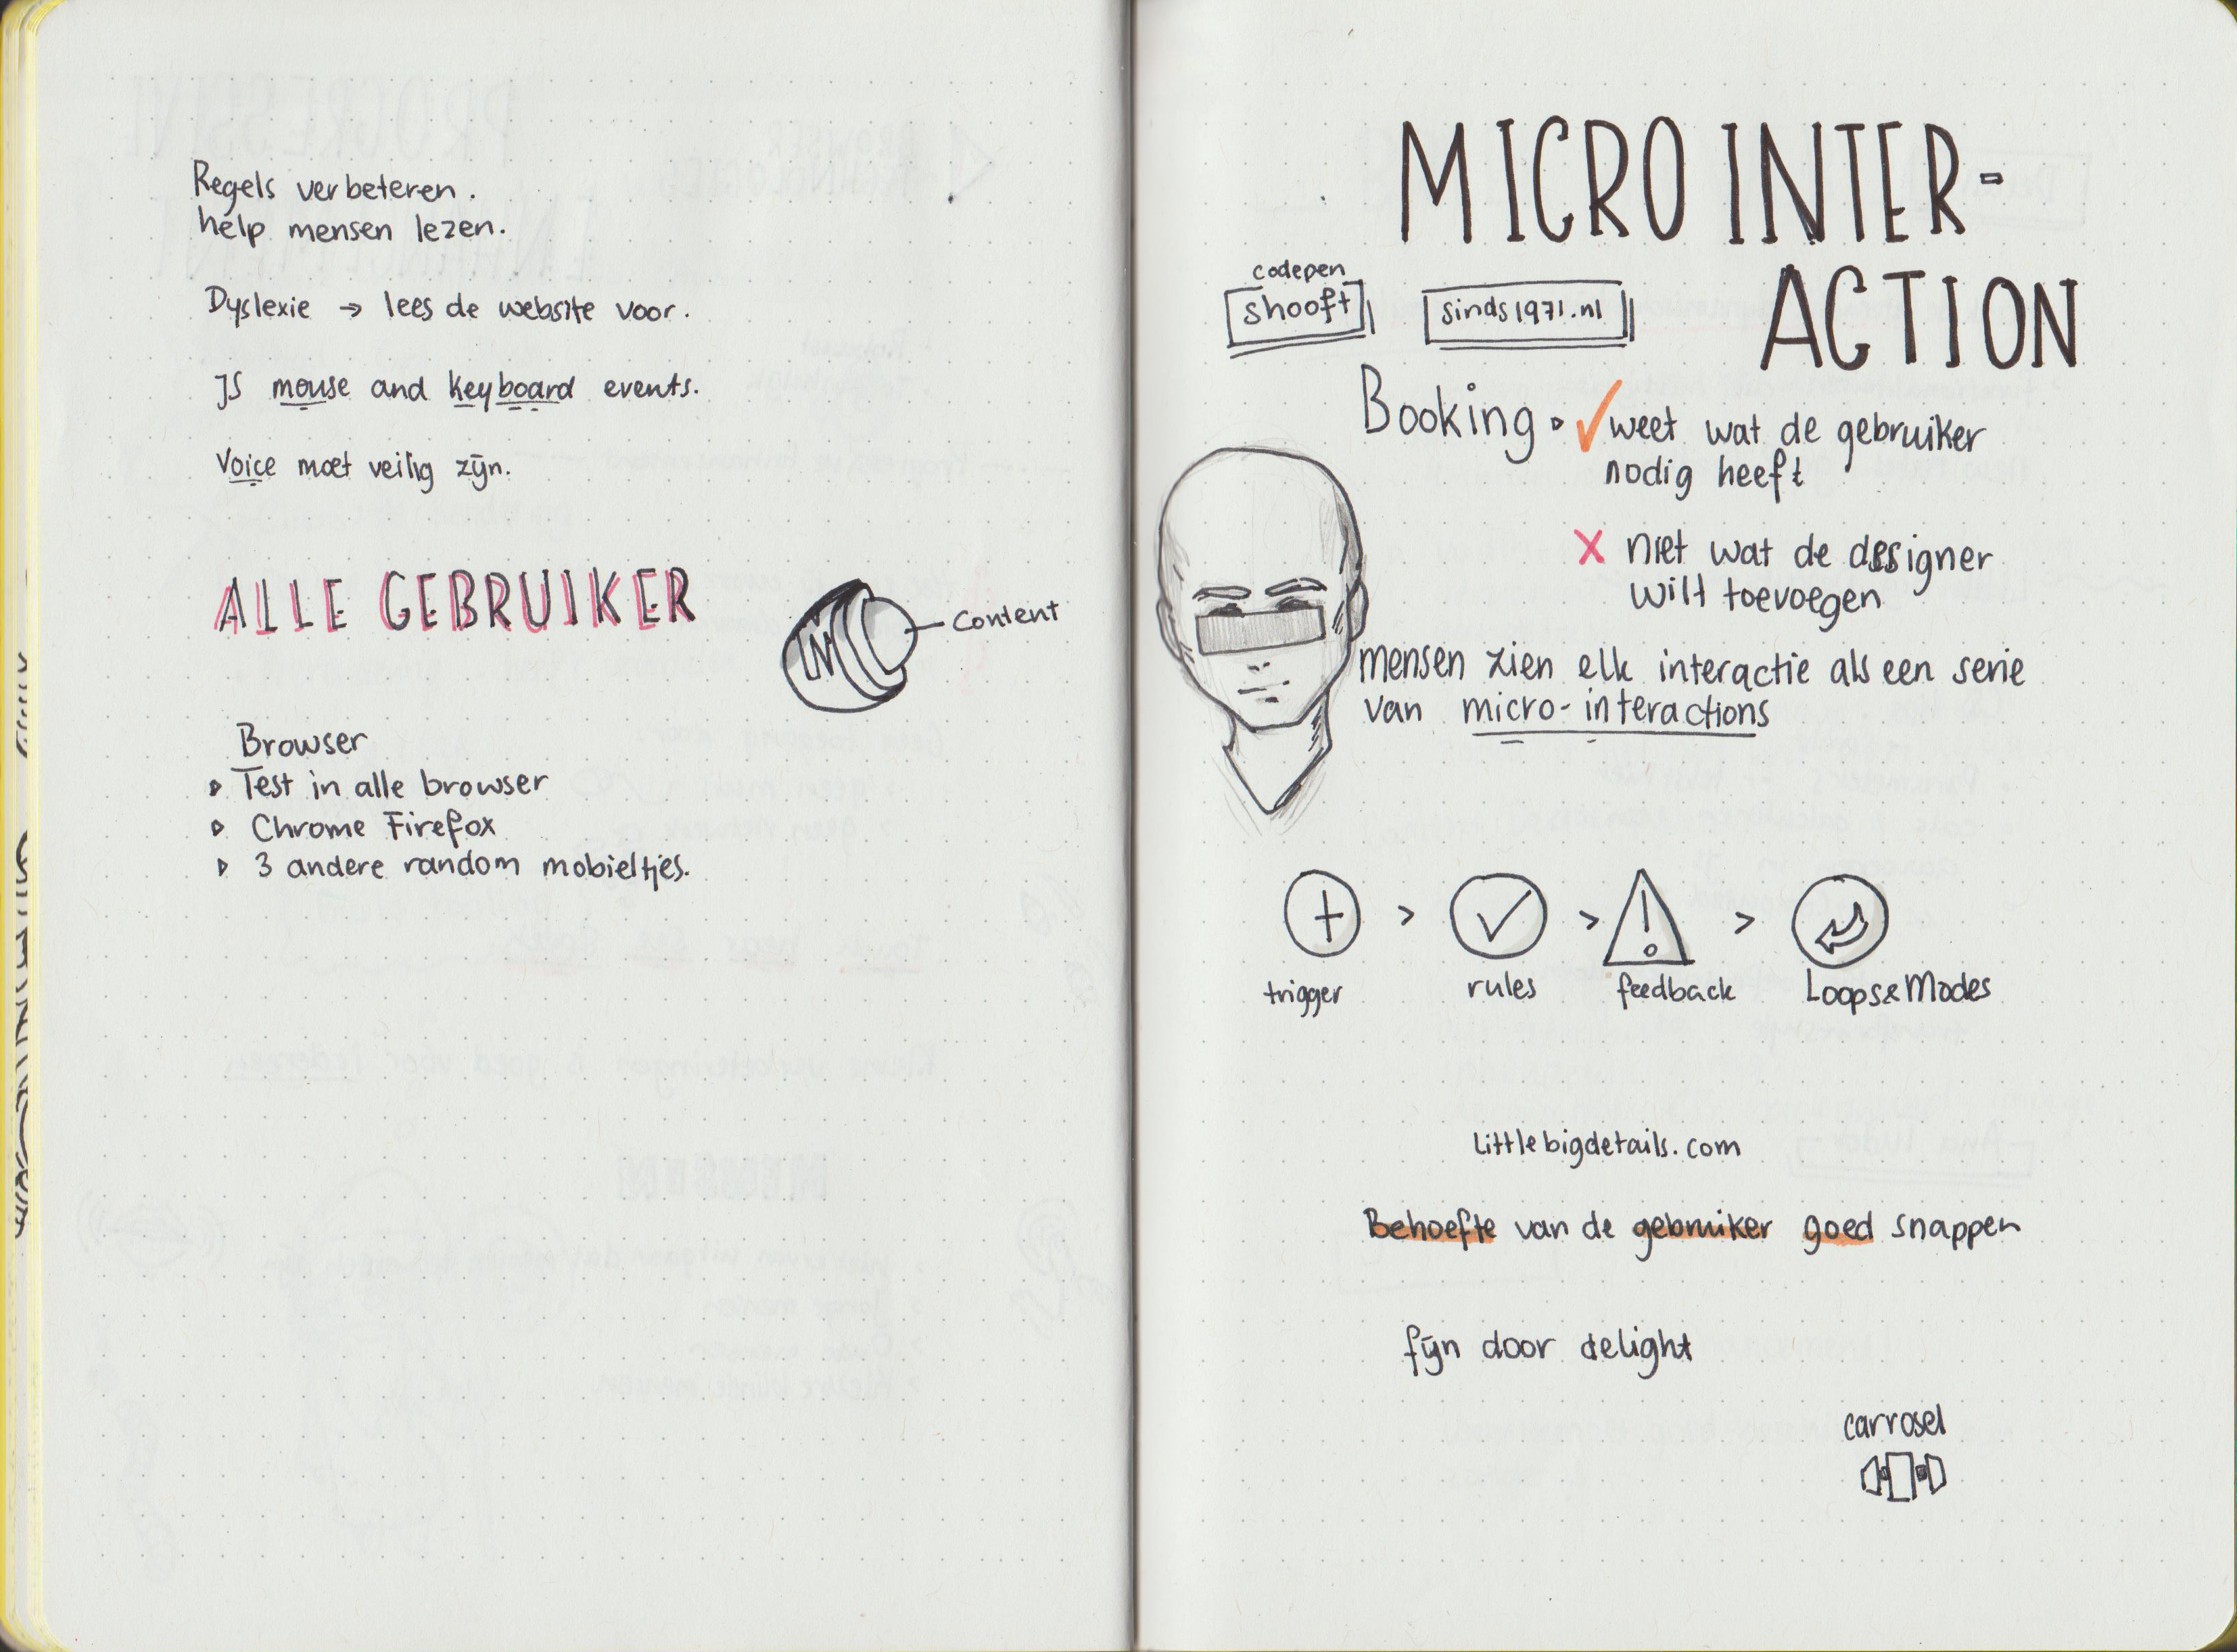 Regels verbeteren.
help mensen lezen.
Dyslexie → lees de website voor.
JS mouse and keyboard events.
Voice moet veilig zijn.
ALLE GEBRUIKER
Content
Browser
Test in alle browser
Chrome Firefox
3 andere random mobieltjes.
MICRO INTER-
ACTION
codepen
shooft
sinds1971.nl
Booking
weet wat de gebruiker
nodig heeft
x niet wat de designer
wilt toevoegen
mensen zien elk interactie als een serie
van micro-interactions
+ > ✓ > ! >
trigger rules feedback Loops&Modes
Littlebigdetails.com
Behoefte van de gebruiker goed snappen
fijn door delight
carrosel